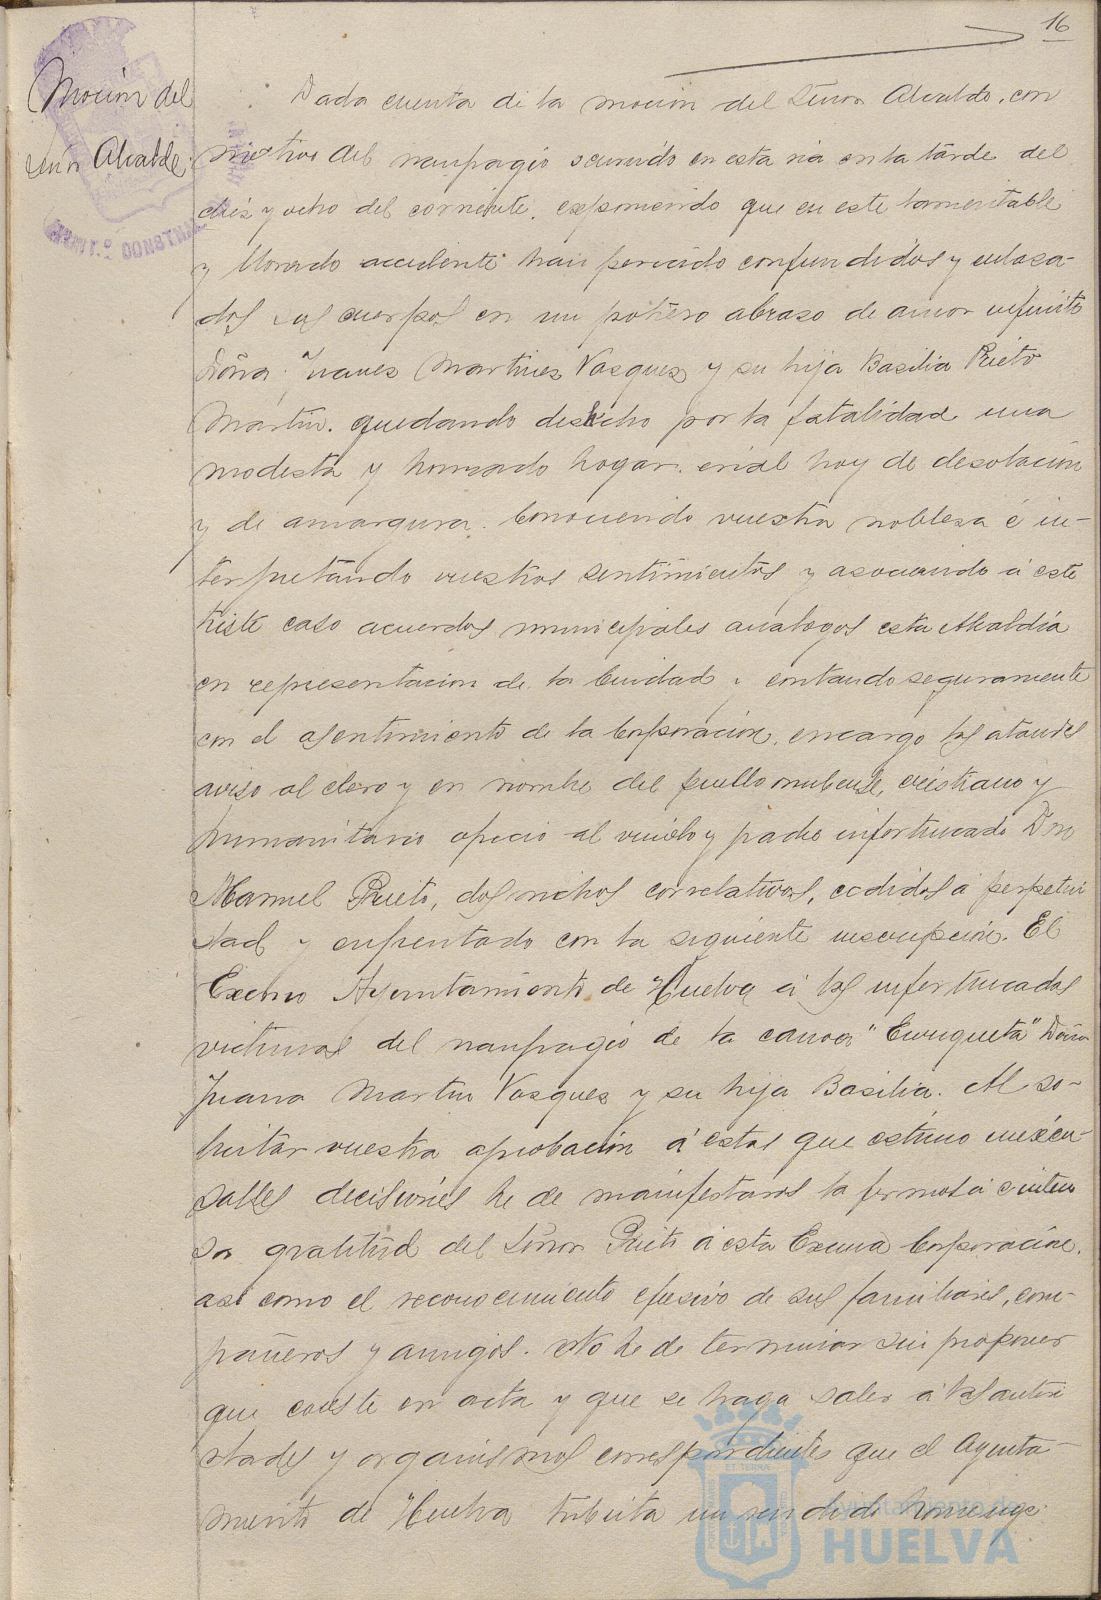 16
Moción del
Señor Alcalde.
Dada cuenta de la moción del Señor Alcalde, con
motivo del naufragio ocurrido en esta ria en la tarde del
diez y ocho del corriente, exponiendo que en este lamentable
y llorado accidente han perecido confundidos y enlaza-
dos sus cuerpos en un postrero abrazo de amor infinito
Doña Juana Martinez Vasquez y su hija Basilia Prieto
Martin, quedando deshecho por la fatalidad una
modesta y honrado hogar, erial hoy de desolación
y de amargura. Conociendo vuestra nobleza é in-
terpretando vuestros sentimientos y asociando á este
triste caso acuerdos municipales analogos esta Alcaldía
en representacion de la Ciudad y contando seguramente
con el asentimiento de la Corporación, encargo los ataudes
aviso al clero y en nombre del pueblo onubense, cristiano y
humanitario ofrecio al viudo y padre infortunado Don
Manuel Prieto, dos nichos correlativos, cedidos á perpetui
dad y enfrentado con la siguiente inscripción. El
Excmo Ayuntamiento de Huelva á las infortunadas
victimas del naufragio de la canoa "Enriqueta" Doña
Juana Martin Vasquez y su hija Basilia. Al so-
licitar vuestra aprobación á estas que estimo inexcu-
sables decisiones he de manifestaros la
gratitud del Señor Prieto á esta Excma Corporación,
asi como el reconocimiento efusivo de sus familiares, com-
pañeros y amigos. No he de terminar sin proponer
que conste en acta y que se haga saber á las autori
dades y organismos correspondientes que el Ayunta-
miento de Huelva tributa un rendido homenaje
Ayuntamiento de
HUELVA